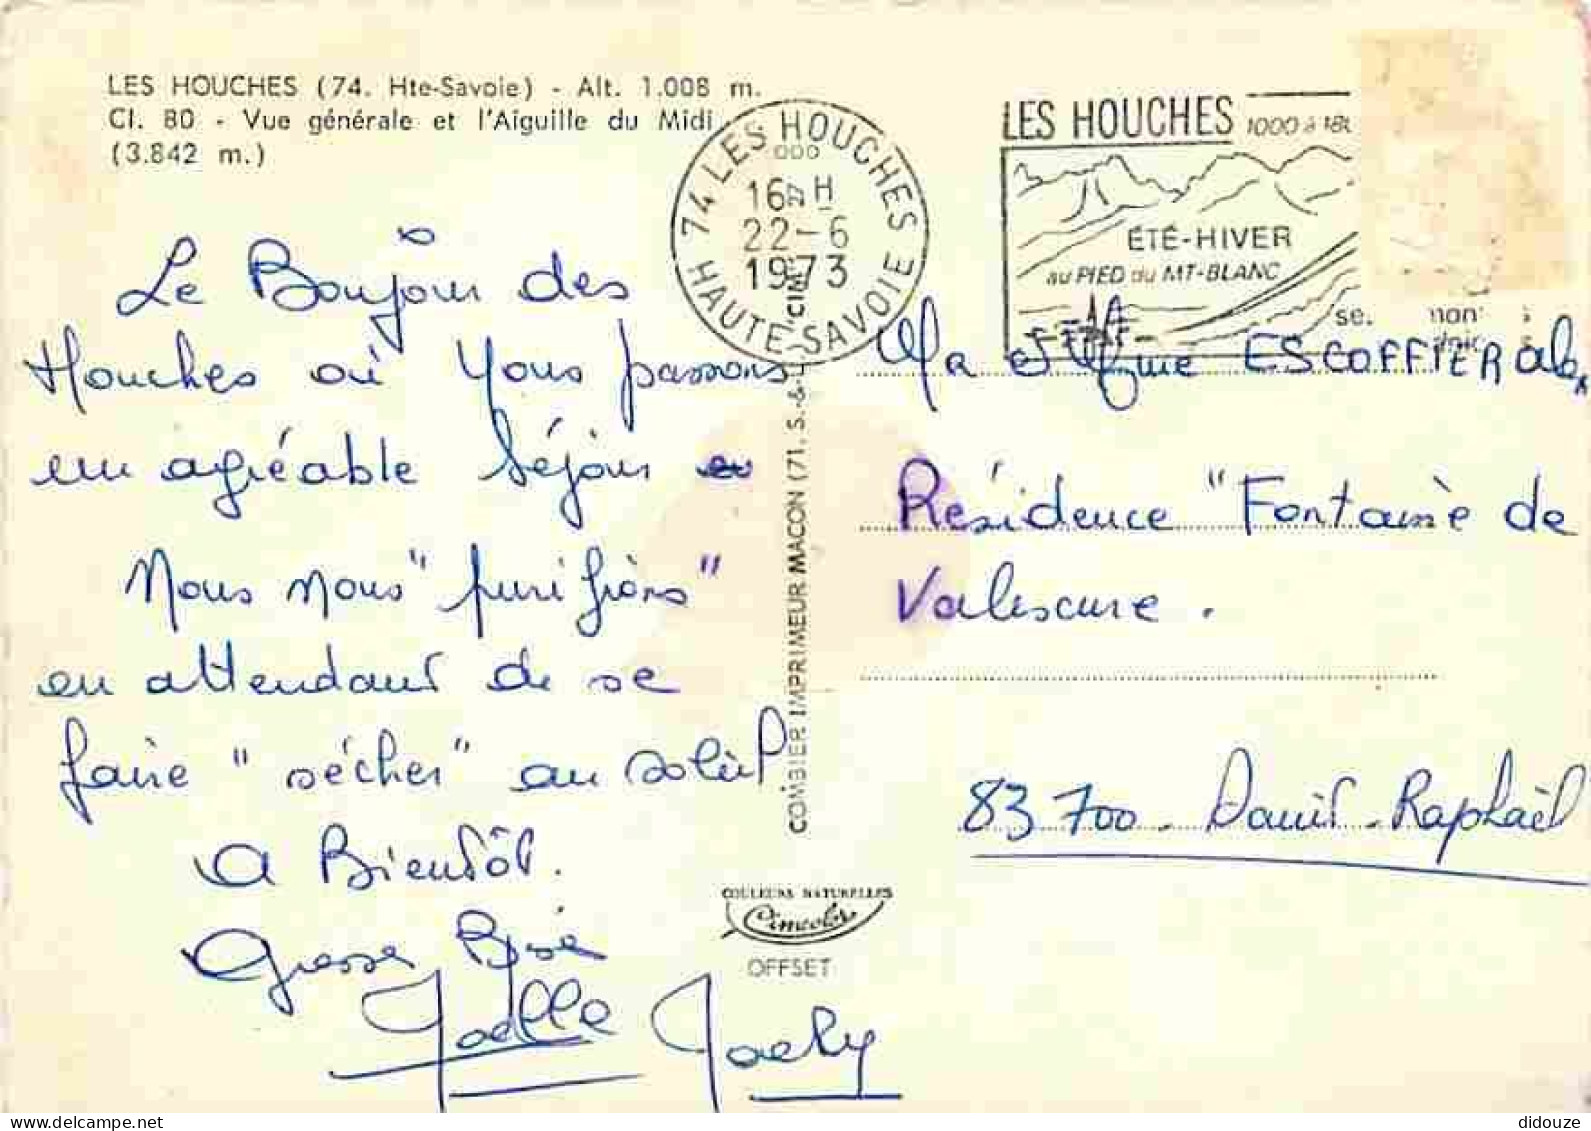 LES HOUCHES (74. Hte-Savoie) - Alt. 1.008 m.
Cl. 80 - Vue générale et l'Aiguille du Midi
(3.842 m.)
74 LES HOUCHES
000
16 H
22-6
1973
HAUTE-SAVOIE
LES HOUCHES 1000 à
ÉTÉ-HIVER
au PIED du MT-BLANC
Le Bonjour des
Houches où Nous passons
un agréable Séjour
Nous nous "purifions"
en attendant de se
faire "sécher" au soleil
A Bientôt.
Grosse Bise
Joelle Joely
COMBIER IMPRIMEUR MACON (71. S.-&-L.) "CIM"
COULEURS NATURELLES
Cimcolor
OFFSET
Mr et Mme ESCOFFIER
Résidence "Fontaine de
Valescure.
83700 - Saint-Raphaël
delcampe.net
didouze